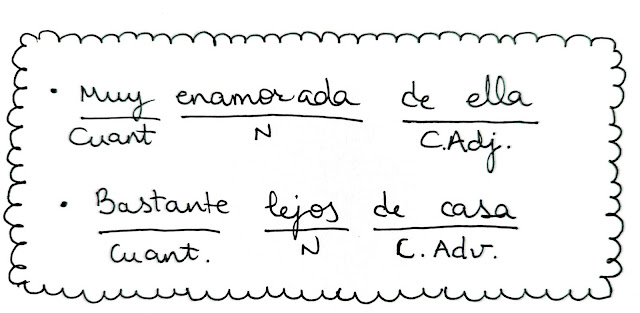 • Muy enamorada de ella
Cuant N C.Adj.
• Bastante lejos de casa
Cuant. N C. Adv.